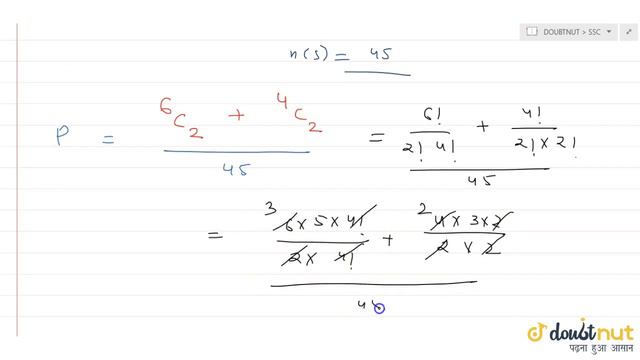 DOUBTNUT > SSC
n(s) = 45
P = (⁶C₂ + ⁴C₂) / 45 = (6! / (2! 4!) + 4! / (2! × 2!)) / 45
= (³ 6 × 5 × 4! / (2 × 4!) + ² 4 × 3 × 2 / (2 × 2)) / 4
doubtnut
पढ़ना हुआ आसान